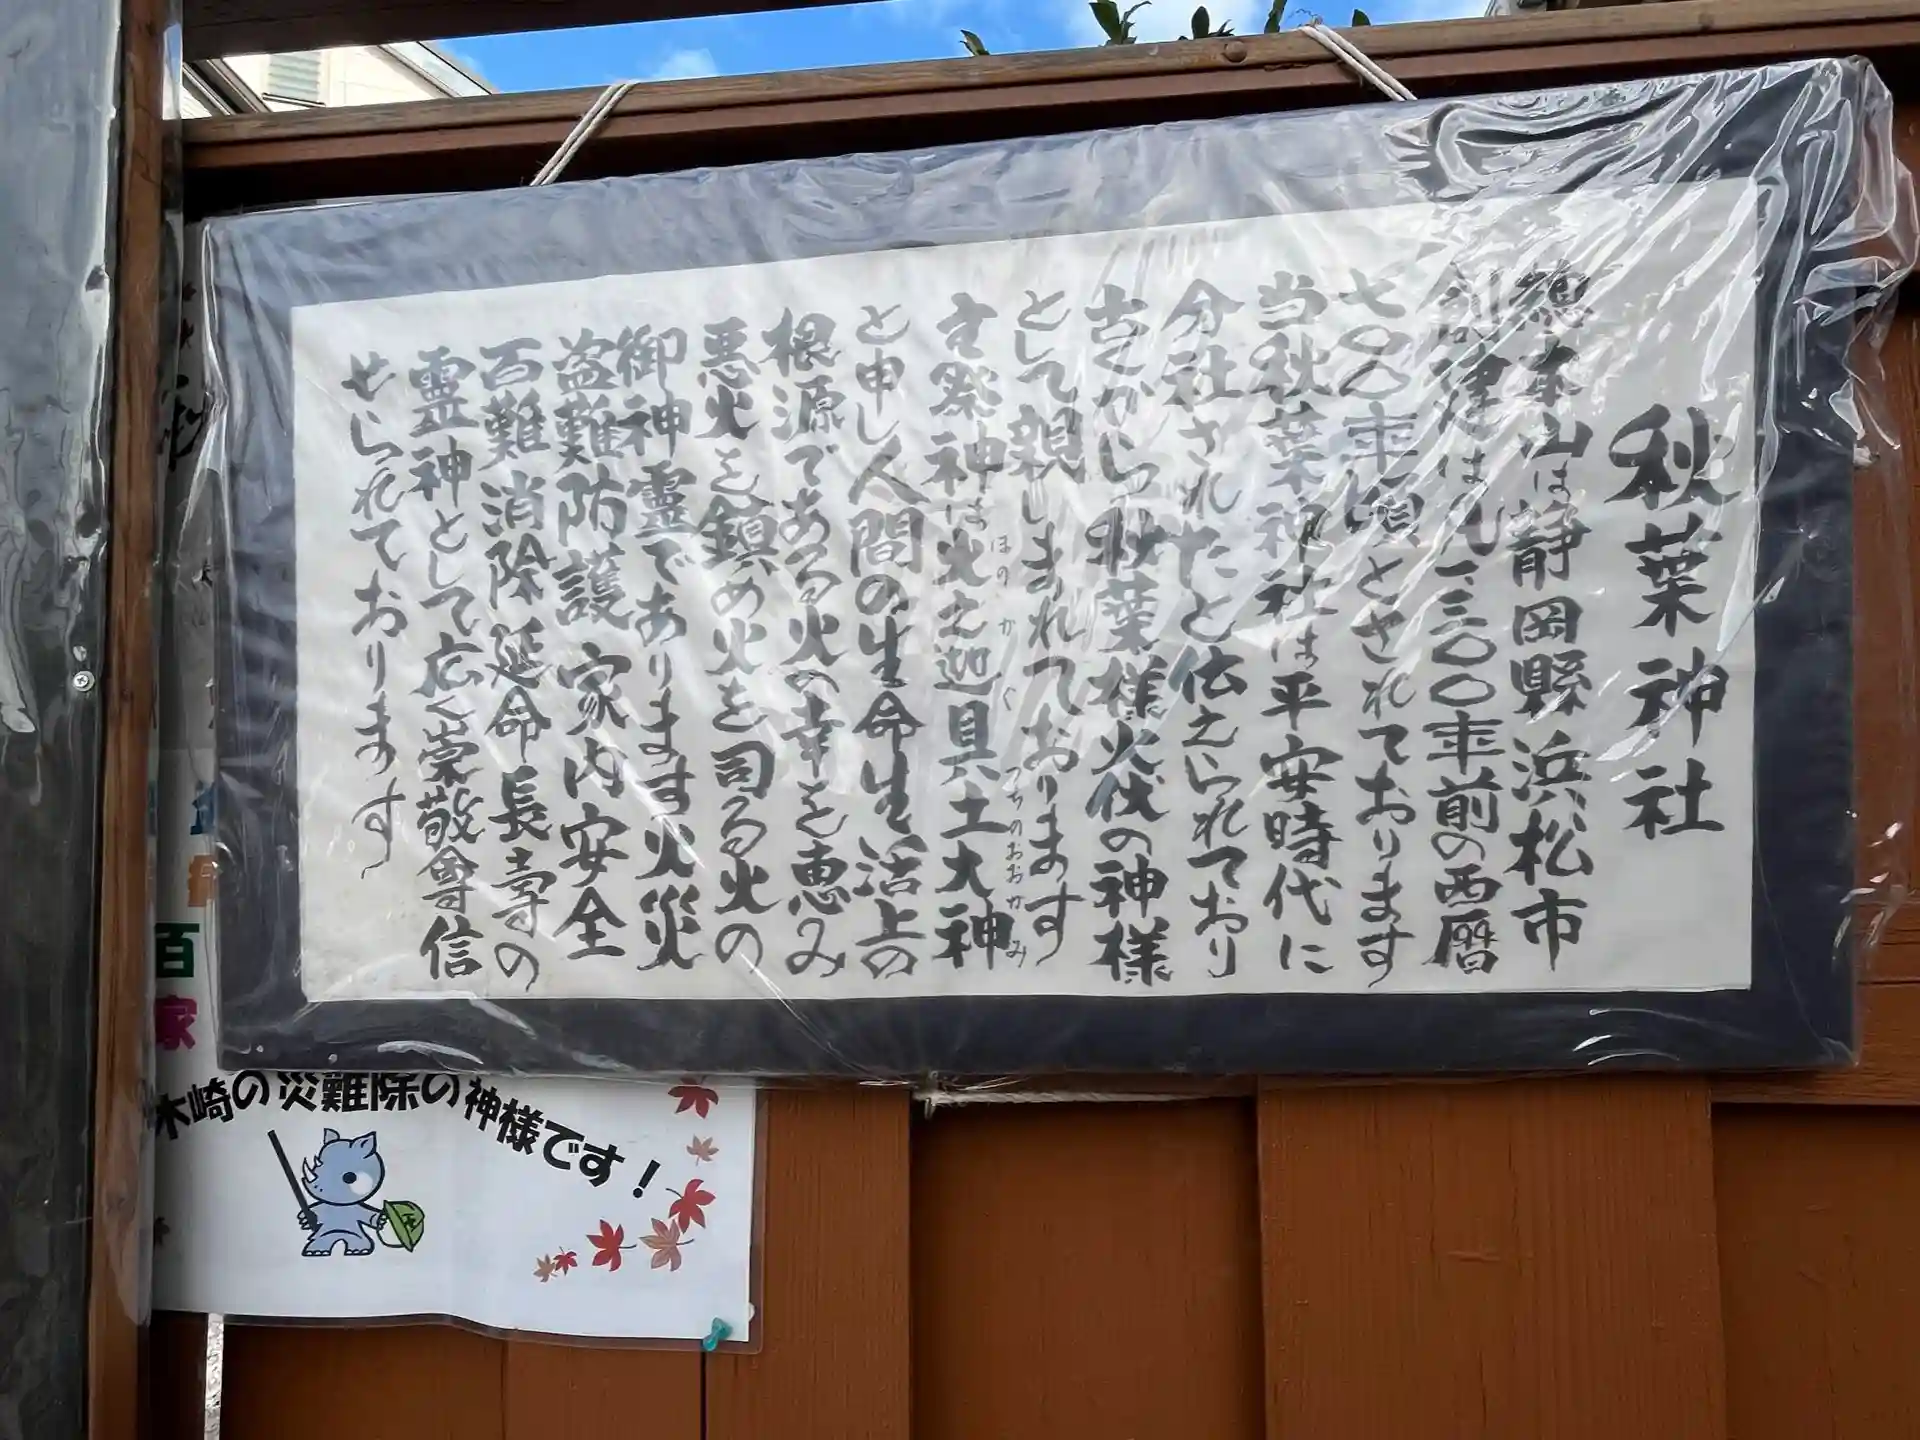 秋葉神社
總本山は静岡縣浜松市
創建は凡一三〇〇年前の西暦
七〇〇年頃とされております
当秋葉神社は平安時代に
分社されたと伝えられており
古くから秋葉様火伏の神様
として親しまれております
主祭神は火之迦具土大神
ほのかぐつちのおおかみ
と申し人間の生命生活上の
根源である火の幸を恵み
悪火を鎮め火を司る火の
御神霊であります火災
盗難防護家内安全
百難消除延命長寿の
霊神として広く崇敬尊信
せられております
百
家
木崎の災難除の神様です!